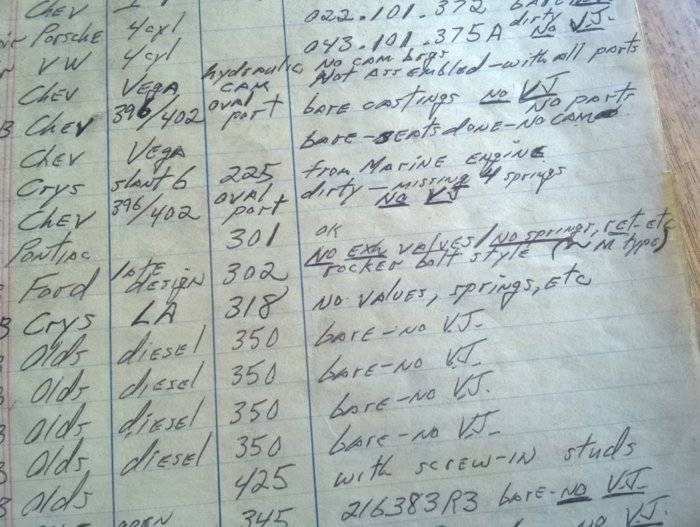 Chev
022.101.372
Porsche 4cyl 043.101.375A dirty NO V.J.
VW 4cyl NO CAM brgs
Chev VEGA hydraulic CAM Not Assembled-with all parts
B Chev 396/402 oval port bare castings NO V.J.
Chev VEGA bare-seats done-NO CAM NO parts
Crys slant 6 225 from MARINE ENGINE
Chev 396/402 oval port dirty-missing 4 springs NO V.J.
Pontiac 301 OK
Ford late design 302 NO EXH. valves/NO springs, ret-etc rocker bolt style (~ M type)
B Crys LA 318 NO valves, springs, etc
Olds diesel 350 bare-no V.J.
Olds diesel 350 bare-no V.J.
Olds diesel 350 bare-no V.J.
Olds diesel 350 bare-no V.J.
B Olds 425 with screw-in studs
OPEN 345 216383R3 bare-no V.J.
NO V.J.